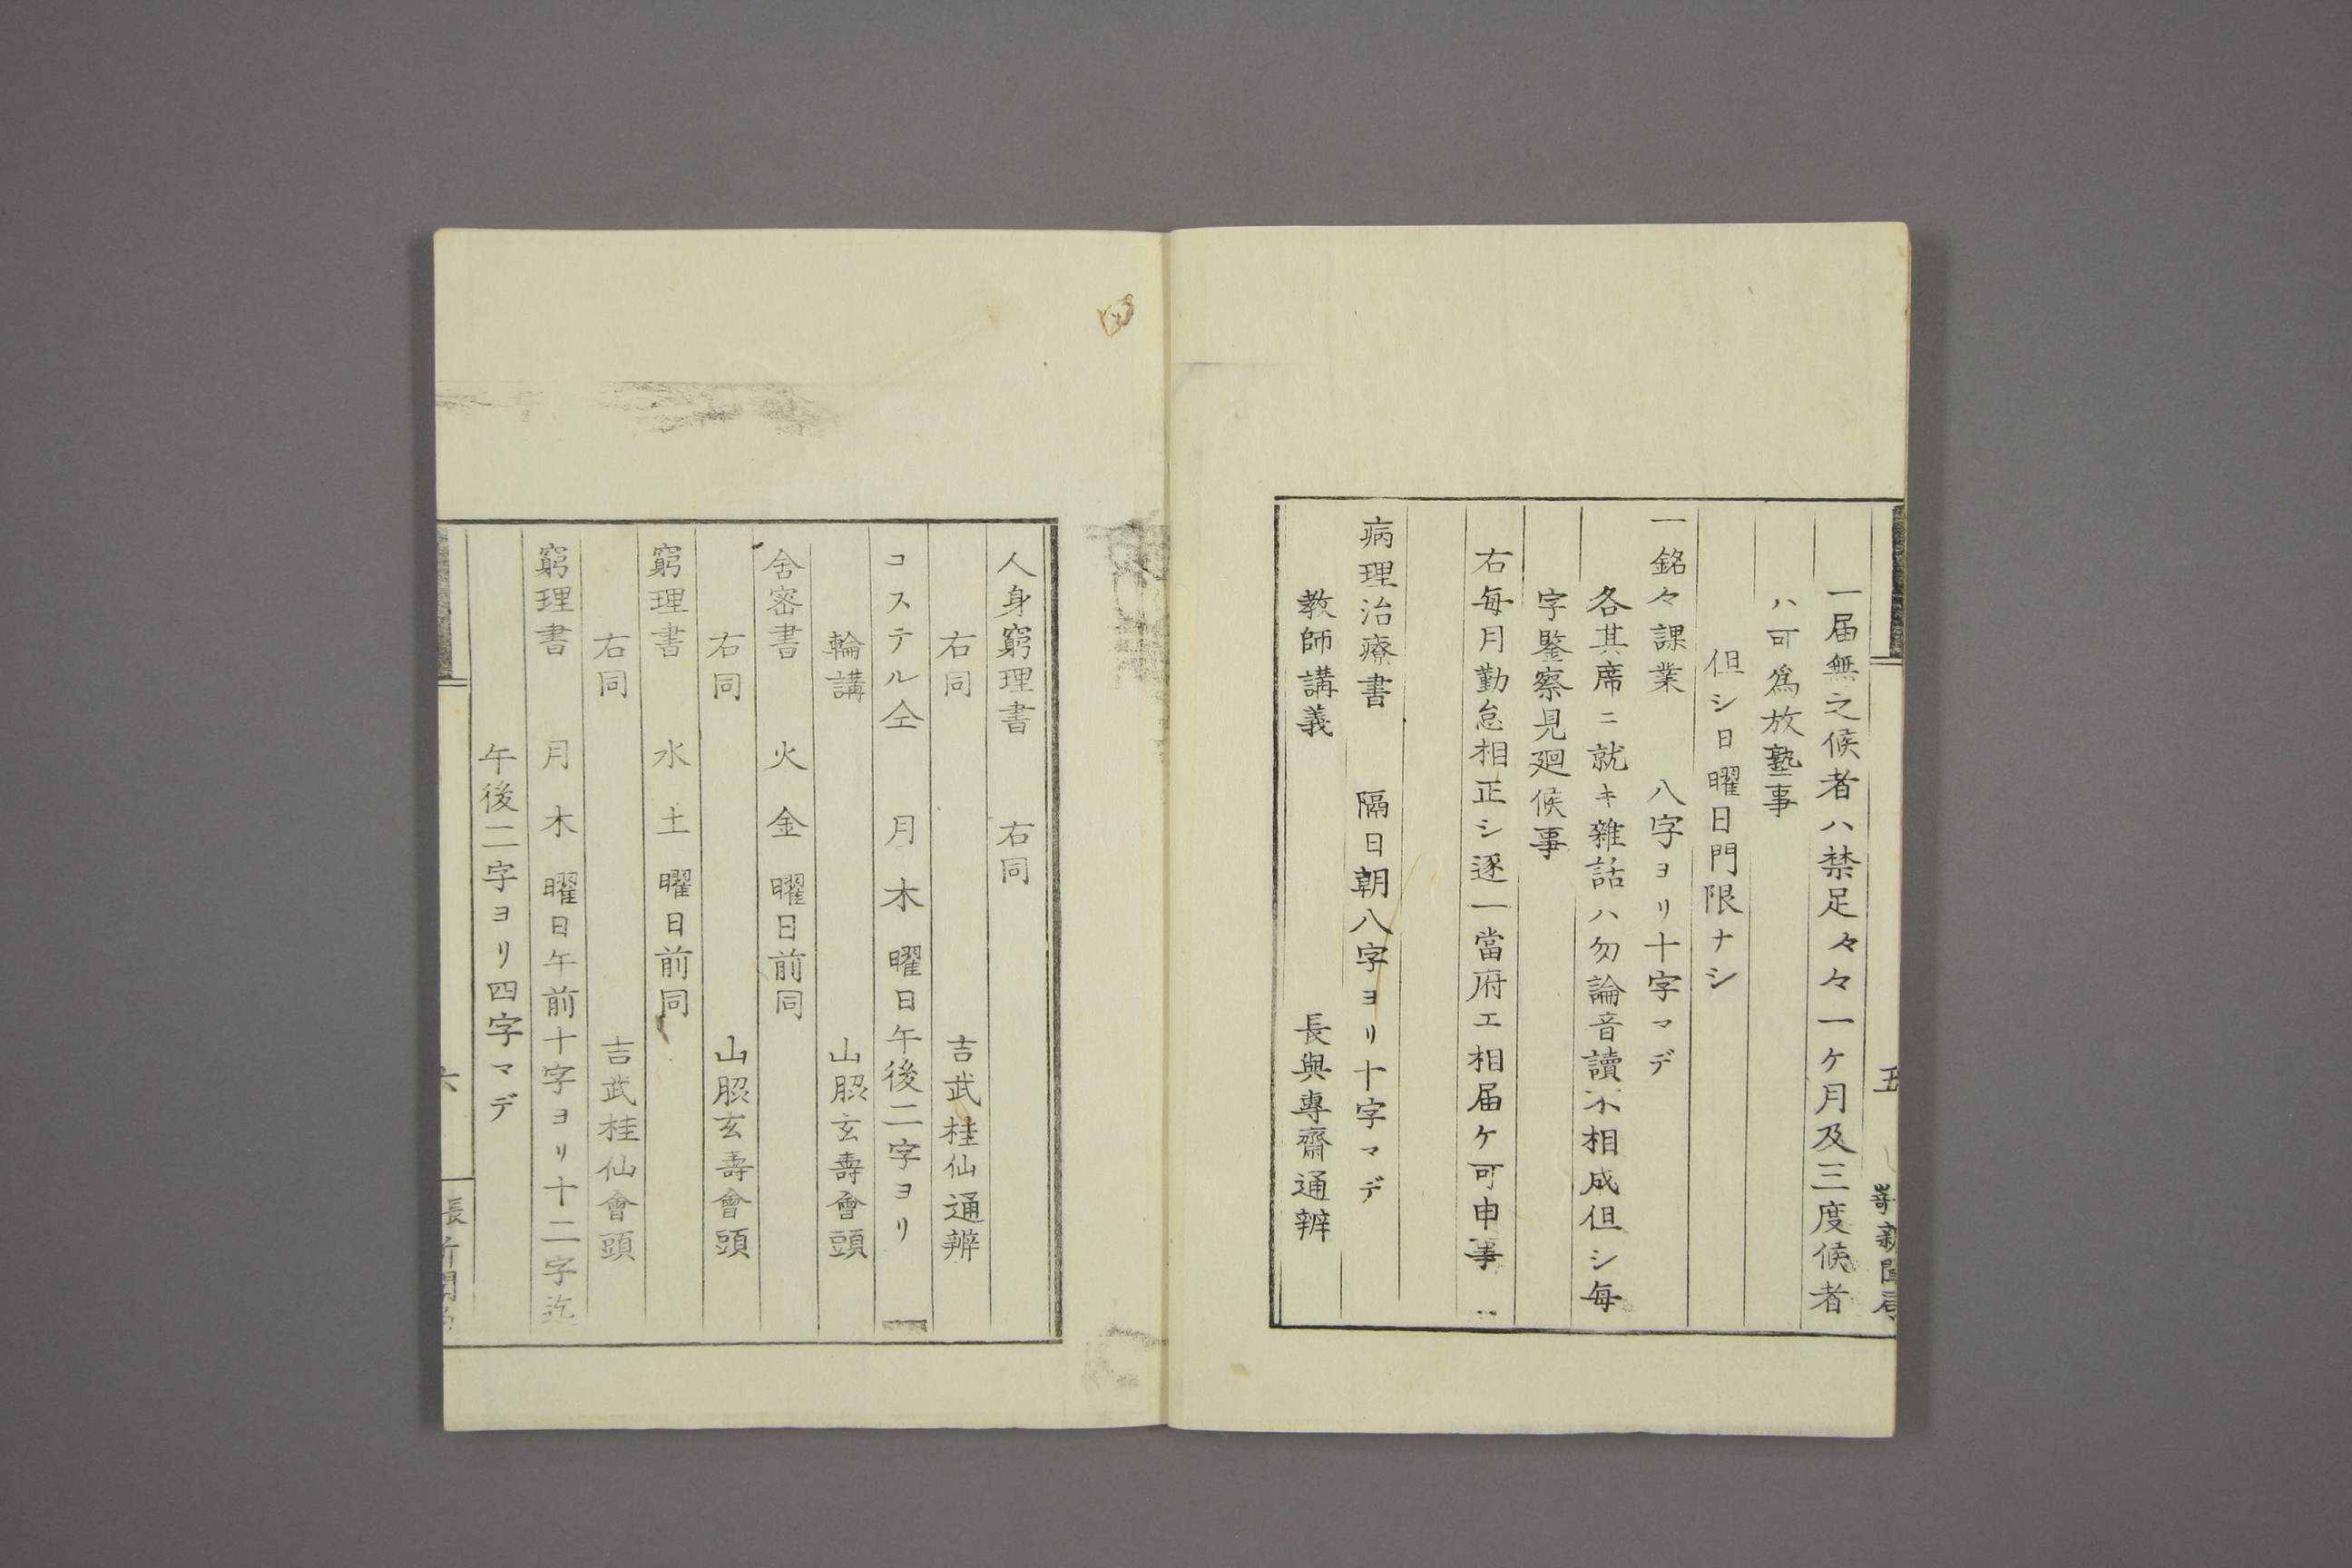 五
嵜新聞局
一届無之候者ハ禁足々々一ケ月及三度候者
ハ可爲放塾事
但シ日曜日門限ナシ
一銘々課業 八字ヨリ十字マデ
各其席ニ就キ雑話ハ勿論音讀不相成但シ每
字鑒察見廻候事
右每月勤怠相正シ逐一當府エ相届ケ可申事
病理治療書 隔日朝八字ヨリ十字マデ
教師講義 長與專齋通辨
人身窮理書 右同
右同 吉武桂仙通辨
コステル仝 月木曜日午後二字ヨリ
輪講 山脇玄壽會頭
舎密書 火金曜日前同
右同 山脇玄壽會頭
窮理書 水土曜日前同
右同 吉武桂仙會頭
窮理書 月木曜日午前十字ヨリ十二字迄
午後二字ヨリ四字マデ
六
長